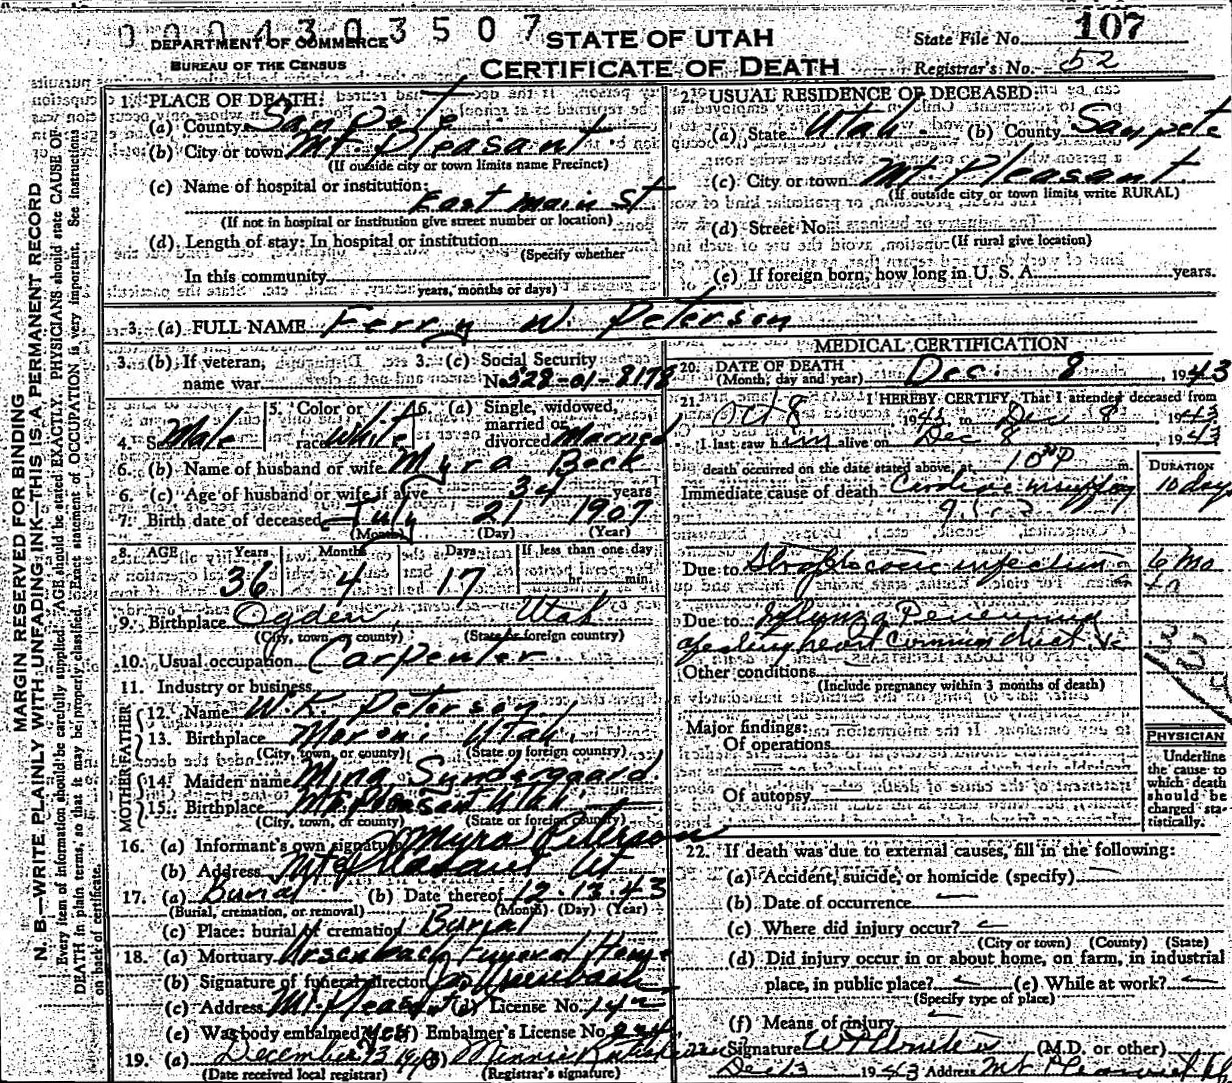 0004303507
DEPARTMENT OF COMMERCE
BUREAU OF THE CENSUS
STATE OF UTAH
CERTIFICATE OF DEATH
State File No. 107
Registrar's No. 52
MARGIN RESERVED FOR BINDING
N. B.—WRITE PLAINLY WITH UNFADING INK—THIS IS A PERMANENT RECORD
Every item of information should be carefully supplied. AGE should be stated EXACTLY. PHYSICIANS should state CAUSE OF
DEATH in plain terms, so that it may be properly classified. Exact statement of OCCUPATION is very important. See instructions
on back of certificate.
1. PLACE OF DEATH:
(a) County Sanpete
(b) City or town Mt Pleasant
(If outside city or town limits name Precinct)
(c) Name of hospital or institution:
East Main St
(If not in hospital or institution give street number or location)
(d) Length of stay: In hospital or institution
(Specify whether
In this community
years, months or days)
2. USUAL RESIDENCE OF DECEASED
(a) State Utah (b) County Sanpete
(c) City or town Mt. Pleasant
(If outside city or town limits write RURAL)
(d) Street No.
(If rural give location)
(e) If foreign born, how long in U. S. A. years.
3. (a) FULL NAME Ferry W. Peterson
3. (b) If veteran, name war
3. (c) Social Security No. 528-01-8178
4. Sex Male
5. Color or race White
6. (a) Single, widowed, married or divorced Married
6. (b) Name of husband or wife Myra Beck
6. (c) Age of husband or wife if alive 34 years
7. Birth date of deceased July 21 1907
(Month) (Day) (Year)
8. AGE Years Months Days If less than one day
36 4 17 hr. min.
9. Birthplace Ogden, Utah
(City, town, or county) (State or foreign country)
10. Usual occupation Carpenter
11. Industry or business
FATHER
12. Name W. K. Peterson
13. Birthplace Moroni Utah.
(City, town, or county) (State or foreign country)
MOTHER
14. Maiden name Mina Syndergaard
15. Birthplace Mt Pleasant Utah
(City, town, or county) (State or foreign country)
16. (a) Informant's own signature Myra Peterson
(b) Address Mt Pleasant Ut
17. (a) Burial (b) Date thereof 12-13-43
(Burial, cremation, or removal) (Month) (Day) (Year)
(c) Place: burial or cremation Burial
18. (a) Mortuary Ursenbach Funeral Home
(b) Signature of funeral director Ursenbach
(c) Address Mt. Pleasant (d) License No. 142
(e) Was body embalmed Yes (f) Embalmer's License No. 234
19. (a) December 13 1943 (b)
(Date received local registrar) (Registrar's signature)
MEDICAL CERTIFICATION
20. DATE OF DEATH
(Month, day and year) Dec. 8 1943
21. I HEREBY CERTIFY, That I attended deceased from
Oct 8 1943 to Dec 8 1943
I last saw him alive on Dec 8 1943
death occurred on the date stated above, at 10 P m.
DURATION
Immediate cause of death Cardiac 10 day
Due to infection 6 Mo
Due to
heart
Other conditions
(Include pregnancy within 3 months of death)
Major findings:
Of operations
Of autopsy
PHYSICIAN
Underline
the cause to
which death
should be
charged sta-
tistically.
22. If death was due to external causes, fill in the following:
(a) Accident, suicide, or homicide (specify)
(b) Date of occurrence
(c) Where did injury occur?
(City or town) (County) (State)
(d) Did injury occur in or about home, on farm, in industrial
place, in public place? (e) While at work?
(Specify type of place)
(f) Means of injury
23. Signature (M.D. or other)
Dec 13 1943 Address Mt Pleasant Ut